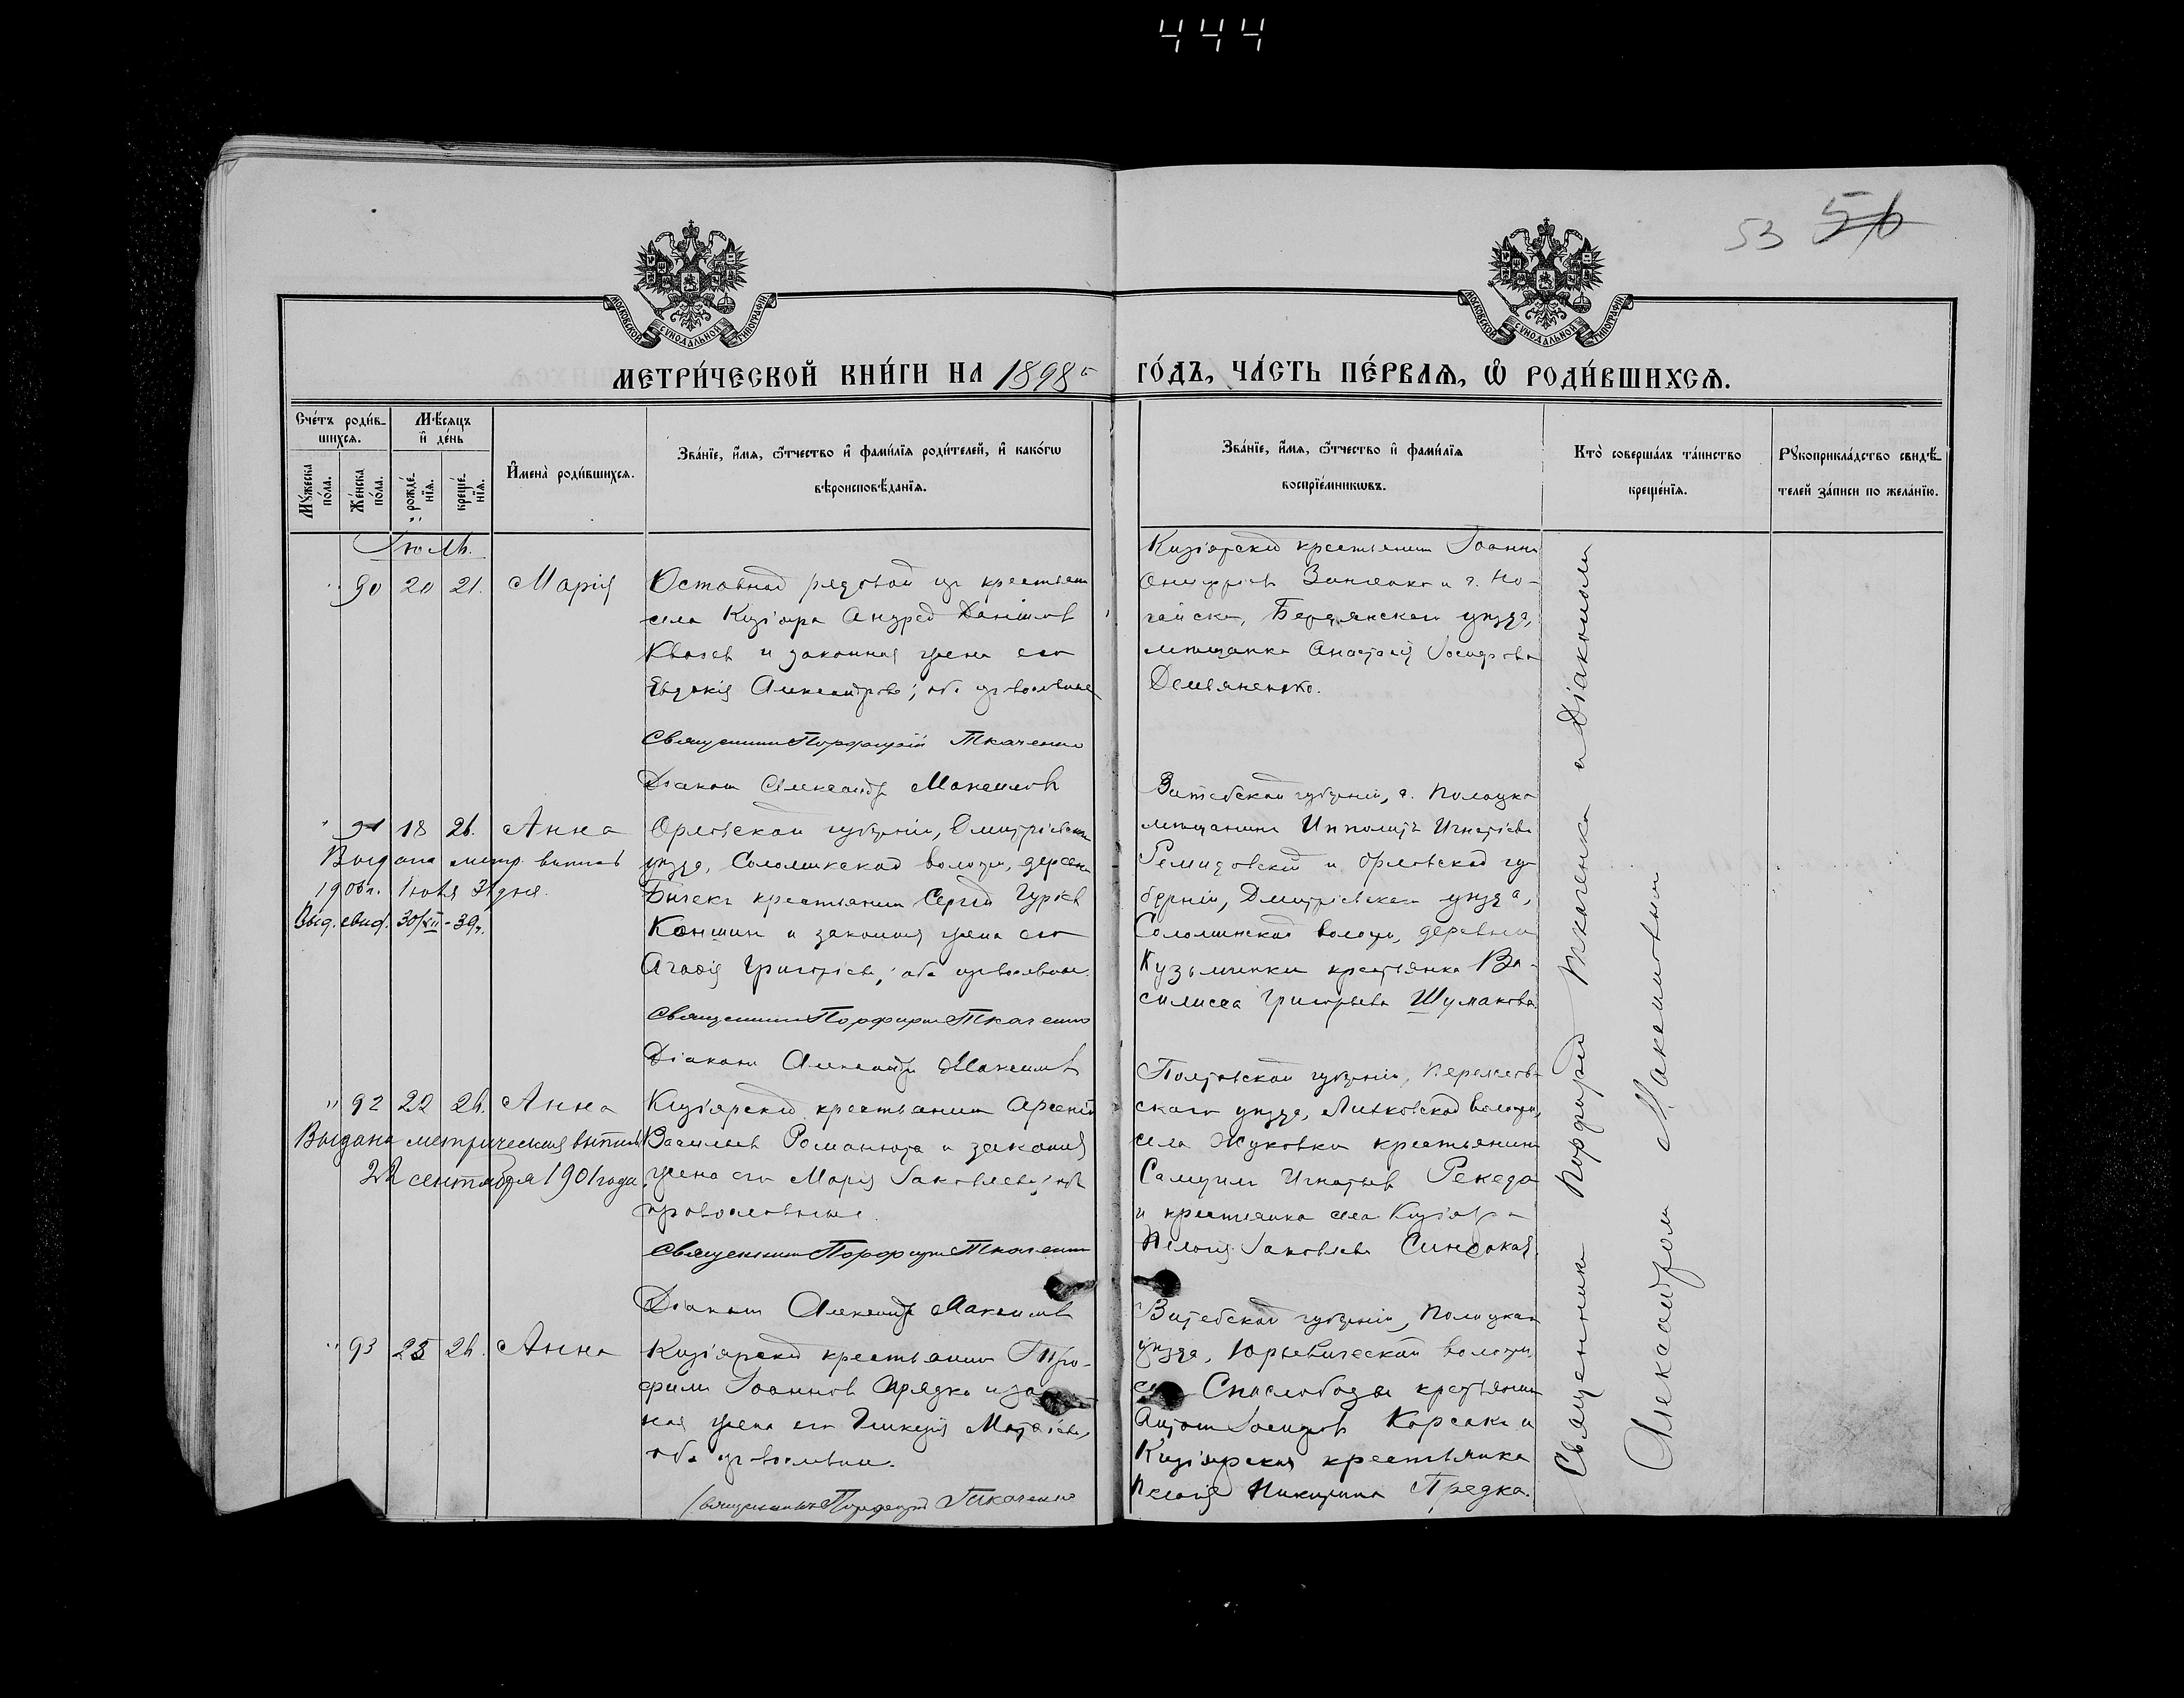 444
53 56
МОСКОВСКОЙ СѴНОДАЛЬНОЙ ТИПОГРАФІИ
МОСКОВСКОЙ СѴНОДАЛЬНОЙ ТИПОГРАФІИ
МЕТРИ́ЧЕСКОЙ КНИ́ГИ НА 1898й ГО́ДЪ, ЧА́СТЬ ПЕ́РВАѦ, Ѡ РОДИ́ВШИХСѦ.
Сче́тъ роди́в-
шихсѧ.
Мꙋ́жеска по́ла.
Же́нска по́ла.
Мѣ́сѧцъ
и҆ де́нь
рожде́-
нїѧ.
креще́-
нїѧ.
И҆мена̀ роди́вшихсѧ.
Зва́нїе, и҆́мѧ, ѻ҆́тчество и҆ фамилїѧ роди́телей, и҆ како́гѡ
вѣроисповѣ́данїѧ.
Зва́нїе, и҆́мѧ, ѻ҆́тчество и҆ фами́лїѧ
воспрїе́мникѡвъ.
Кто̀ соверша́лъ та́инство
креще́нїѧ.
Рꙋкоприкла́дство свидѣ́-
телей за́писи по жела́нїю.
Іюль.
" 90 20 21. Марія
Отставной рядовой изъ крестьянъ
села Кизіяра Андрей Даніиловъ
и законная жена его
Евдокія Александрова; оба православные
Священникъ Порфирій Ткаченко
Діаконъ Александръ Максимовъ
Кизіярскій крестьянинъ Іоаннъ
Онуфріевъ и г. Но-
гайска, Бердянскаго уѣзда,
мѣщанка Анастасія Іосифова
Демьяненко.
" 91 18 26. Анна
Выдана метр. выпись
1906 г. Іюня дня.
Выд. свид. 30/XII-39г.
Орловской губерніи, Дмитріевскаго
уѣзда, Соломинской волости, деревни
крестьянинъ Сергій Гуріевъ
Коншинъ и законная жена его
Агафія Григоріева; оба православные.
Священникъ Порфирій Ткаченко
Діаконъ Александръ Максимовъ
Витебской губерніи, г. Полоцка
мѣщанинъ Ипполитъ Игнатіевъ
и Орловской гу-
берніи, Дмитріевскаго уѣзда,
Соломинской волости, деревни
Кузьминки крестьянка Ва-
силисса Григорьева Шумакова
" 92 22 26. Анна
Выдана метрическая выпись
22 сентября 1901 года.
Кизіярскій крестьянинъ Арсеній
Васильевъ Романюта и законная
жена его Марія Іаковлева; оба
православные.
Священникъ Порфирій Ткаченко
Діаконъ Александръ Максимовъ
Полтавской губерніи,
скаго уѣзда, волости,
села Жуковки крестьянинъ
Самуилъ Игнатьевъ Рекеда
и крестьянка села Кизіяра
Пелагія Іаковлева
" 93 25 26. Анна
Кизіярскій крестьянинъ Тро-
фимъ Іоанновъ Прядка и закон-
ная жена его Гликерія Матѳіева,
оба православные.
Священникъ Порфирій Ткаченко
Витебской губерніи, Полоцкаго
уѣзда, Юрьевической волости,
крестьянинъ
Антонъ Іосифовъ Корсакъ и
Кизіярская крестьянка
Пелагія Никитина Прядка.
Священникъ Порфирій Ткаченко и Діакономъ
Александромъ Максимовымъ